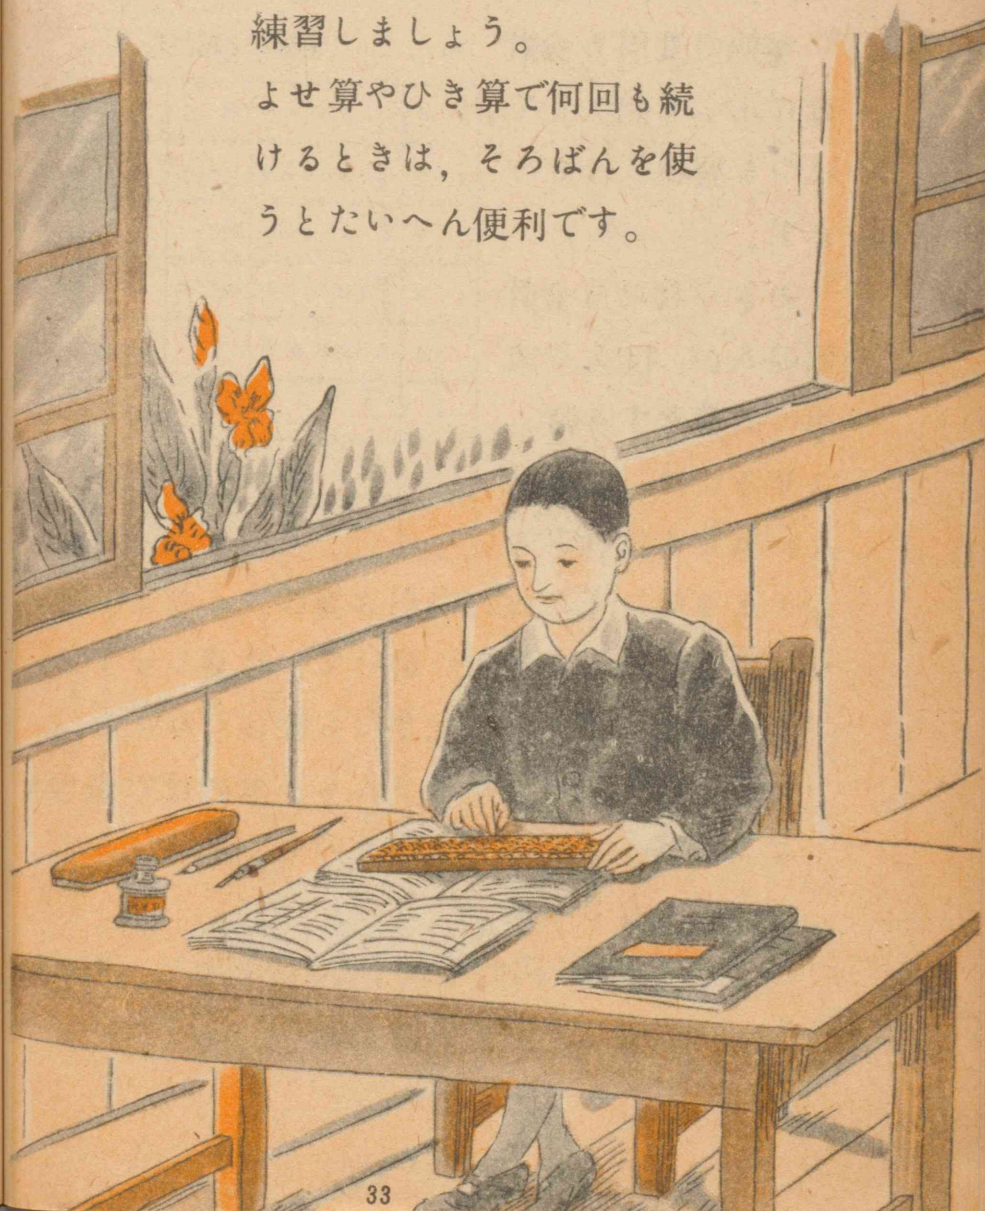 練習しましょう。
よせ算やひき算で何回も続
けるときは，そろばんを使
うとたいへん便利です。
33